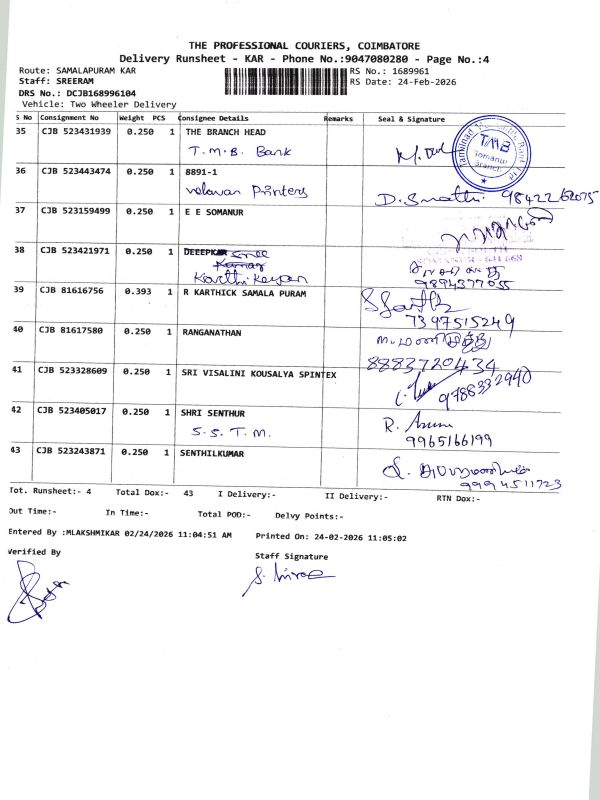 THE PROFESSIONAL COURIERS, COIMBATORE
Delivery Runsheet - KAR - Phone No.:9047080280 - Page No.:4
Route: SAMALAPURAM KAR
RS No.: 1689961
Staff: SREERAM
RS Date: 24-Feb-2026
DRS No.: DCJB168996104
Vehicle: Two Wheeler Delivery
S No Consignment No Weight PCS Consignee Details Remarks Seal & Signature
35 CJB 523431939 0.250 1 THE BRANCH HEAD
T.M.B. Bank
TMB Somanur Branch
36 CJB 523443474 0.250 1 8891-1
velavan Printers
9842262075
37 CJB 523159499 0.250 1 E E SOMANUR
38 CJB 523421971 0.250 1 DEEEPKAR Sree
Kumar
Karthikeyan
9894377055
39 CJB 81616756 0.393 1 R KARTHICK SAMALA PURAM
7397515249
40 CJB 81617580 0.250 1 RANGANATHAN
8883720434
41 CJB 523328609 0.250 1 SRI VISALINI KOUSALYA SPINTEX
9788332940
42 CJB 523405017 0.250 1 SHRI SENTHUR
S.S.T.M.
9965166199
43 CJB 523243871 0.250 1 SENTHILKUMAR
9994511723
Tot. Runsheet:- 4 Total Dox:- 43 I Delivery:- II Delivery:- RTN Dox:-
Out Time:- In Time:- Total POD:- Delvy Points:-
Entered By :MLAKSHMIKAR 02/24/2026 11:04:51 AM Printed On: 24-02-2026 11:05:02
Verified By
Staff Signature